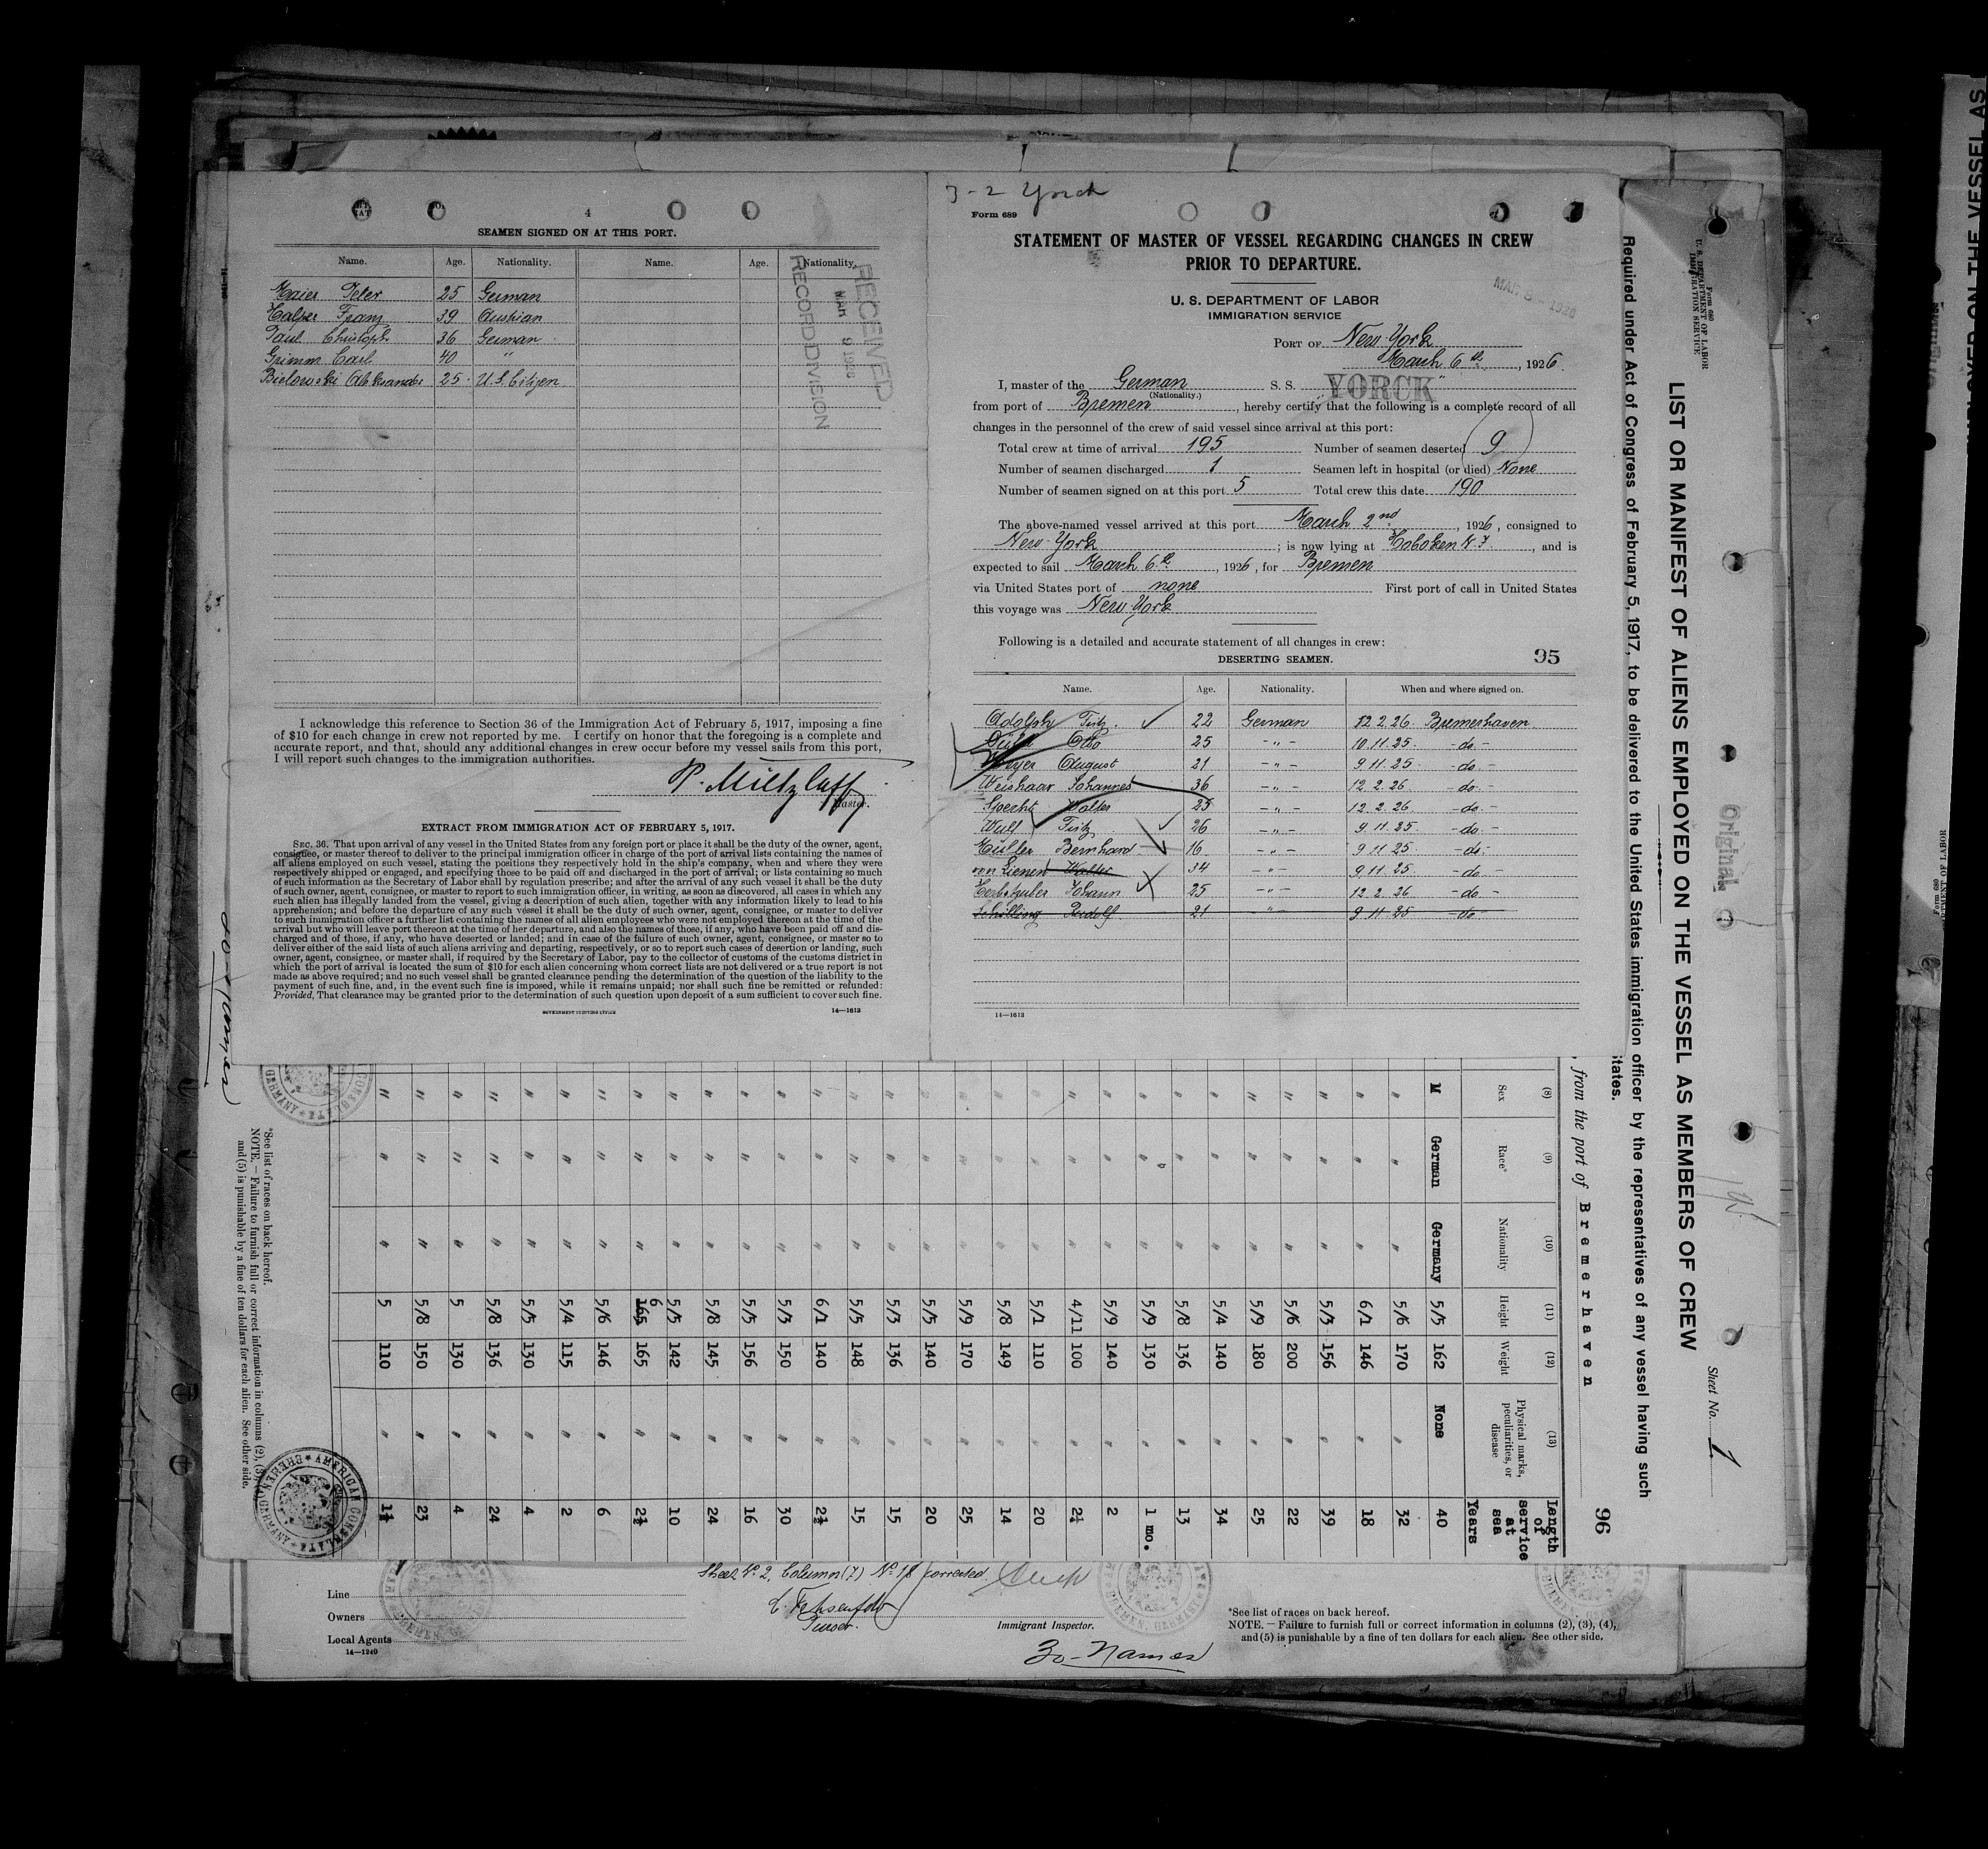 4
SEAMEN SIGNED ON AT THIS PORT.
Name. Age. Nationality. Name. Age. Nationality.
Maier Peter 25 German
Halper Franz 39 Austrian
Paul Christoph 36 German
Grimm Carl 40 "
Bielowski 25 U.S. Citizen
RECEIVED
MAR 9 1926
RECORD DIVISION
I acknowledge this reference to Section 36 of the Immigration Act of February 5, 1917, imposing a fine
of $10 for each change in crew not reported by me. I certify on honor that the foregoing is a complete and
accurate report, and that, should any additional changes in crew occur before my vessel sails from this port,
I will report such changes to the immigration authorities.
P. Mietzlaff
Master.
EXTRACT FROM IMMIGRATION ACT OF FEBRUARY 5, 1917.
SEC. 36. That upon arrival of any vessel in the United States from any foreign port or place it shall be the duty of the owner, agent,
consignee, or master thereof to deliver to the principal immigration officer in charge of the port of arrival lists containing the names of
all aliens employed on such vessel, stating the positions they respectively hold in the ship's company, when and where they were
respectively shipped or engaged, and specifying those to be paid off and discharged in the port of arrival; or lists containing so much
of such information as the Secretary of Labor shall by regulation prescribe; and after the arrival of any such vessel it shall be the duty
of such owner, agent, consignee, or master to report to such immigration officer, in writing, as soon as discovered, all cases in which any
such alien has illegally landed from the vessel, giving a description of such alien, together with any information likely to lead to his
apprehension; and before the departure of any such vessel it shall be the duty of such owner, agent, consignee, or master to deliver
to such immigration officer a further list containing the names of all alien employees who were not employed thereon at the time of the
arrival but who will leave port thereon at the time of her departure, and also the names of those, if any, who have been paid off and dis-
charged and of those, if any, who have deserted or landed; and in case of the failure of such owner, agent, consignee, or master so to
deliver either of the said lists of such aliens arriving and departing, respectively, or so to report such cases of desertion or landing, such
owner, agent, consignee, or master shall, if required by the Secretary of Labor, pay to the collector of customs of the customs district in
which the port of arrival is located the sum of $10 for each alien concerning whom correct lists are not delivered or a true report is not
made as above required; and no such vessel shall be granted clearance pending the determination of the question of the liability to the
payment of such fine, and, in the event such fine is imposed, while it remains unpaid; nor shall such fine be remitted or refunded:
Provided, That clearance may be granted prior to the determination of such question upon deposit of a sum sufficient to cover such fine.
GOVERNMENT PRINTING OFFICE 14—1613
3-2 Yorck
Form 689
STATEMENT OF MASTER OF VESSEL REGARDING CHANGES IN CREW
PRIOR TO DEPARTURE.
U. S. DEPARTMENT OF LABOR
IMMIGRATION SERVICE
MAR 8 - 1926
PORT OF New York
March 6th, 1926.
I, master of the German S. S. "YORCK"
(Nationality.)
from port of Bremen, hereby certify that the following is a complete record of all
changes in the personnel of the crew of said vessel since arrival at this port:
Total crew at time of arrival 195 Number of seamen deserted 9
Number of seamen discharged 1 Seamen left in hospital (or died) None
Number of seamen signed on at this port 5 Total crew this date 190
The above-named vessel arrived at this port March 2nd, 1926, consigned to
New York; is now lying at Hoboken N.J., and is
expected to sail March 6th, 1926, for Bremen
via United States port of none First port of call in United States
this voyage was New York
Following is a detailed and accurate statement of all changes in crew:
DESERTING SEAMEN. 95
Name. Age. Nationality. When and where signed on.
Adolph Fritz 22 German 12.2.26. Bremerhaven
Otto 25 - " - 10.11.25. - do. -
Meyer August 21 - " - 9.11.25. - do. -
Weishaar Johannes 36 - " - 12.2.26 - do. -
Specht Walter 25 - " - 12.2.26. - do. -
Wulf Fritz 26 - " - 9.11.25. - do. -
Müller Bernhard 16 - " - 9.11.25. - do. -
von Lienen Walter 34 - " - 9.11.25. - do. -
Herbstruber Johann 25 - " - 12.2.26 - do. -
Schilling Rudolf 21 - " - 9.11.25 - do -
14—1613
Form 680
U. S. DEPARTMENT OF LABOR
IMMIGRATION SERVICE
Original
Sheet No. 1
LIST OR MANIFEST OF ALIENS EMPLOYED ON THE VESSEL AS MEMBERS OF CREW
Required under Act of Congress of February 5, 1917, to be delivered to the United States immigration officer by the representatives of any vessel having such
tates.
, from the port of Bremerhaven
96
(8) (9) (10) (11) (12) (13)
Sex Race* Nationality Height Weight Physical marks, peculiarities, or disease Length of service at sea Years
M German Germany 5/5 162 None 40
" " " 5/6 170 " 32
" " " 6/1 146 " 18
" " " 5/3 156 " 39
" " " 5/6 200 " 22
" " " 5/9 180 " 25
" " " 5/4 140 " 34
" " " 5/8 136 " 13
" " " 5/9 130 " 1 mo.
" " " 5/9 140 " 2
" " " 4/11 100 " 2½
" " " 5/1 110 " 20
" " " 5/8 149 " 14
" " " 5/9 170 " 25
" " " 5/5 140 " 20
" " " 5/3 136 " 15
" " " 5/5 148 " 15
" " " 6/1 140 " 2½
" " " 5/3 150 " 30
" " " 5/5 156 " 16
" " " 5/8 145 " 24
" " " 5/5 142 " 10
" " " 6 165 165 " 2½
" " " 5/6 146 " 6
" " " 5/4 115 " 2
" " " 5/5 130 " 4
" " " 5/8 136 " 24
" " " 5 130 " 4
" " " 5/8 150 " 23
" " " 5 110 " 1½
*See list of races on back hereof.
NOTE.—Failure to furnish full or correct information in columns (2), (3),
and (5) is punishable by a fine of ten dollars for each alien. See other side.
AMERICAN CONSULATE * BREMEN, GERMANY *
Sheet No. 2, Column (7) No. 18 corrected.
Line
Owners
Purser.
Immigrant Inspector.
Local Agents
14—1240
30-Names
*See list of races on back hereof.
NOTE.—Failure to furnish full or correct information in columns (2), (3), (4),
and (5) is punishable by a fine of ten dollars for each alien. See other side.